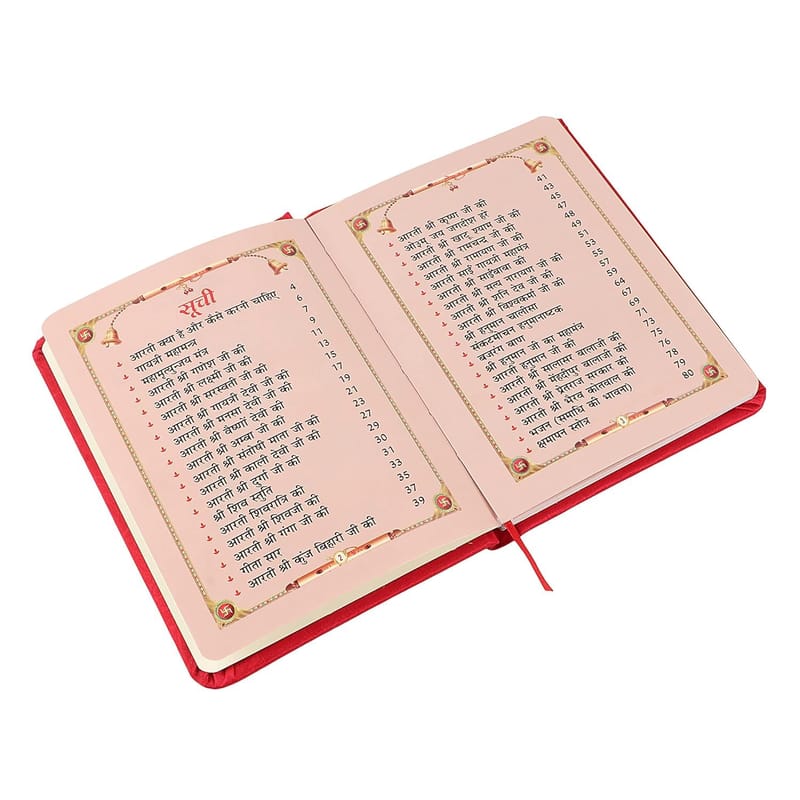 सूची
आरती क्या है और कैसे करनी चाहिए 4
गायत्री महामन्त्र 6
महामृत्युन्जय मंत्र 7
आरती श्री गणेश जी की 9
आरती श्री लक्ष्मी जी की 11
आरती श्री सरस्वती जी की 13
आरती श्री गायत्री देवी जी की 15
आरती श्री मनसा देवी जी की 17
आरती श्री वैष्णों देवी की 19
आरती श्री अम्बा जी की 21
आरती श्री संतोषी माता जी की 23
आरती श्री काली देवी जी की 27
आरती श्री दुर्गा जी की 29
श्री शिव स्तुति 30
आरती शिवरात्रि की 31
आरती श्री शिवजी की 33
आरती श्री गंगा जी की 35
गीता सार 37
आरती श्री कुंज बिहारी जी की 39
2
आरती श्री कृष्ण जी की 41
ओ३म् जय जगदीश हरे 43
आरती श्री खाटू श्याम जी की 45
आरती श्री रामचन्द्र जी की 47
आरती श्री रामायण जी की 48
आरती साई गायत्री महामंत्र 49
आरती श्री साईबाबा की 51
आरती श्री सत्य नारायण जी की 53
आरती श्री शनि देव जी की 55
आरती श्री विश्वकर्मा जी की 57
श्री हनुमान चालीसा 59
संकटमोचन हनुमानाष्टक 64
बजरंग बाण 67
श्री हनुमान जी का महामंत्र 69
आरती हनुमान जी की 71
आरती श्री सालासर बालाजी की 73
आरती श्री मेंहदीपुर बालाजी की 75
आरती श्री प्रेतराज सरकार की 76
आरती श्री भैरव कोतवाल की 78
भजन (समाधि की भावना) 79
क्षमापन स्तोत्र 80
3